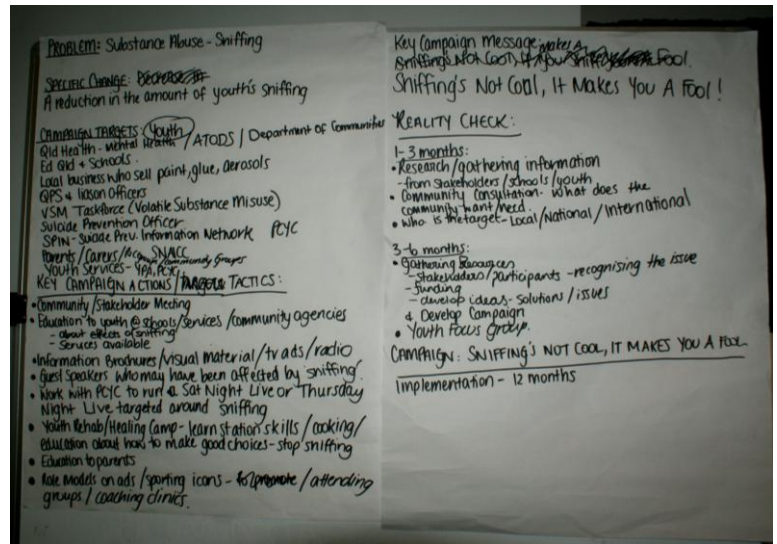 PROBLEM: Substance Abuse - Sniffing
SPECIFIC CHANGE:
A reduction in the amount of youth's sniffing
CAMPAIGN TARGETS: Youth
Qld Health - Mental Health / ATODS / Department of Communities
Ed Qld & Schools.
Local business who sell paint, glue, aerosols
QPS & liason Officers
VSM Taskforce (Volatile Substance Misuse)
Suicide Prevention Officer
SPIN - Suicide Prev. Information Network PCYC
Parents / Carers / SNACC
Youth Services - YPA, PCYC / Community Groups
KEY CAMPAIGN ACTIONS / TACTICS:
• Community / Stakeholder Meeting
• Education to youth @ schools / services / community agencies
- about effects of sniffing
- Services available
• Information Brochures / visual material / tv ads / radio
• Guest Speakers who may have been affected by 'sniffing'.
• Work with PCYC to run a Sat Night Live or Thursday
Night Live targeted around sniffing
• Youth Rehab / Healing Camp - learn station skills / cooking /
education about how to make good choices - stop sniffing
• Education to parents
• Role Models on ads / sporting icons - / attending
groups / coaching clinics.
Key Campaign Message
Sniffing's Not Cool, It makes a Fool.
Sniffing's Not Cool, It Makes You A Fool!
REALITY CHECK:
1-3 months:
• Research / gathering information
- from Stakeholders / schools / youth
• Community Consultation - what does the
community want/need.
• Who is the target - Local / National / International
3-6 months:
• Gathering Resources
- Stakeholders / participants - recognising the issue
- funding
- develop ideas - Solutions / issues
& Develop Campaign
• Youth Focus Group.
CAMPAIGN: SNIFFING'S NOT COOL, IT MAKES YOU A FOOL
Implementation - 12 months